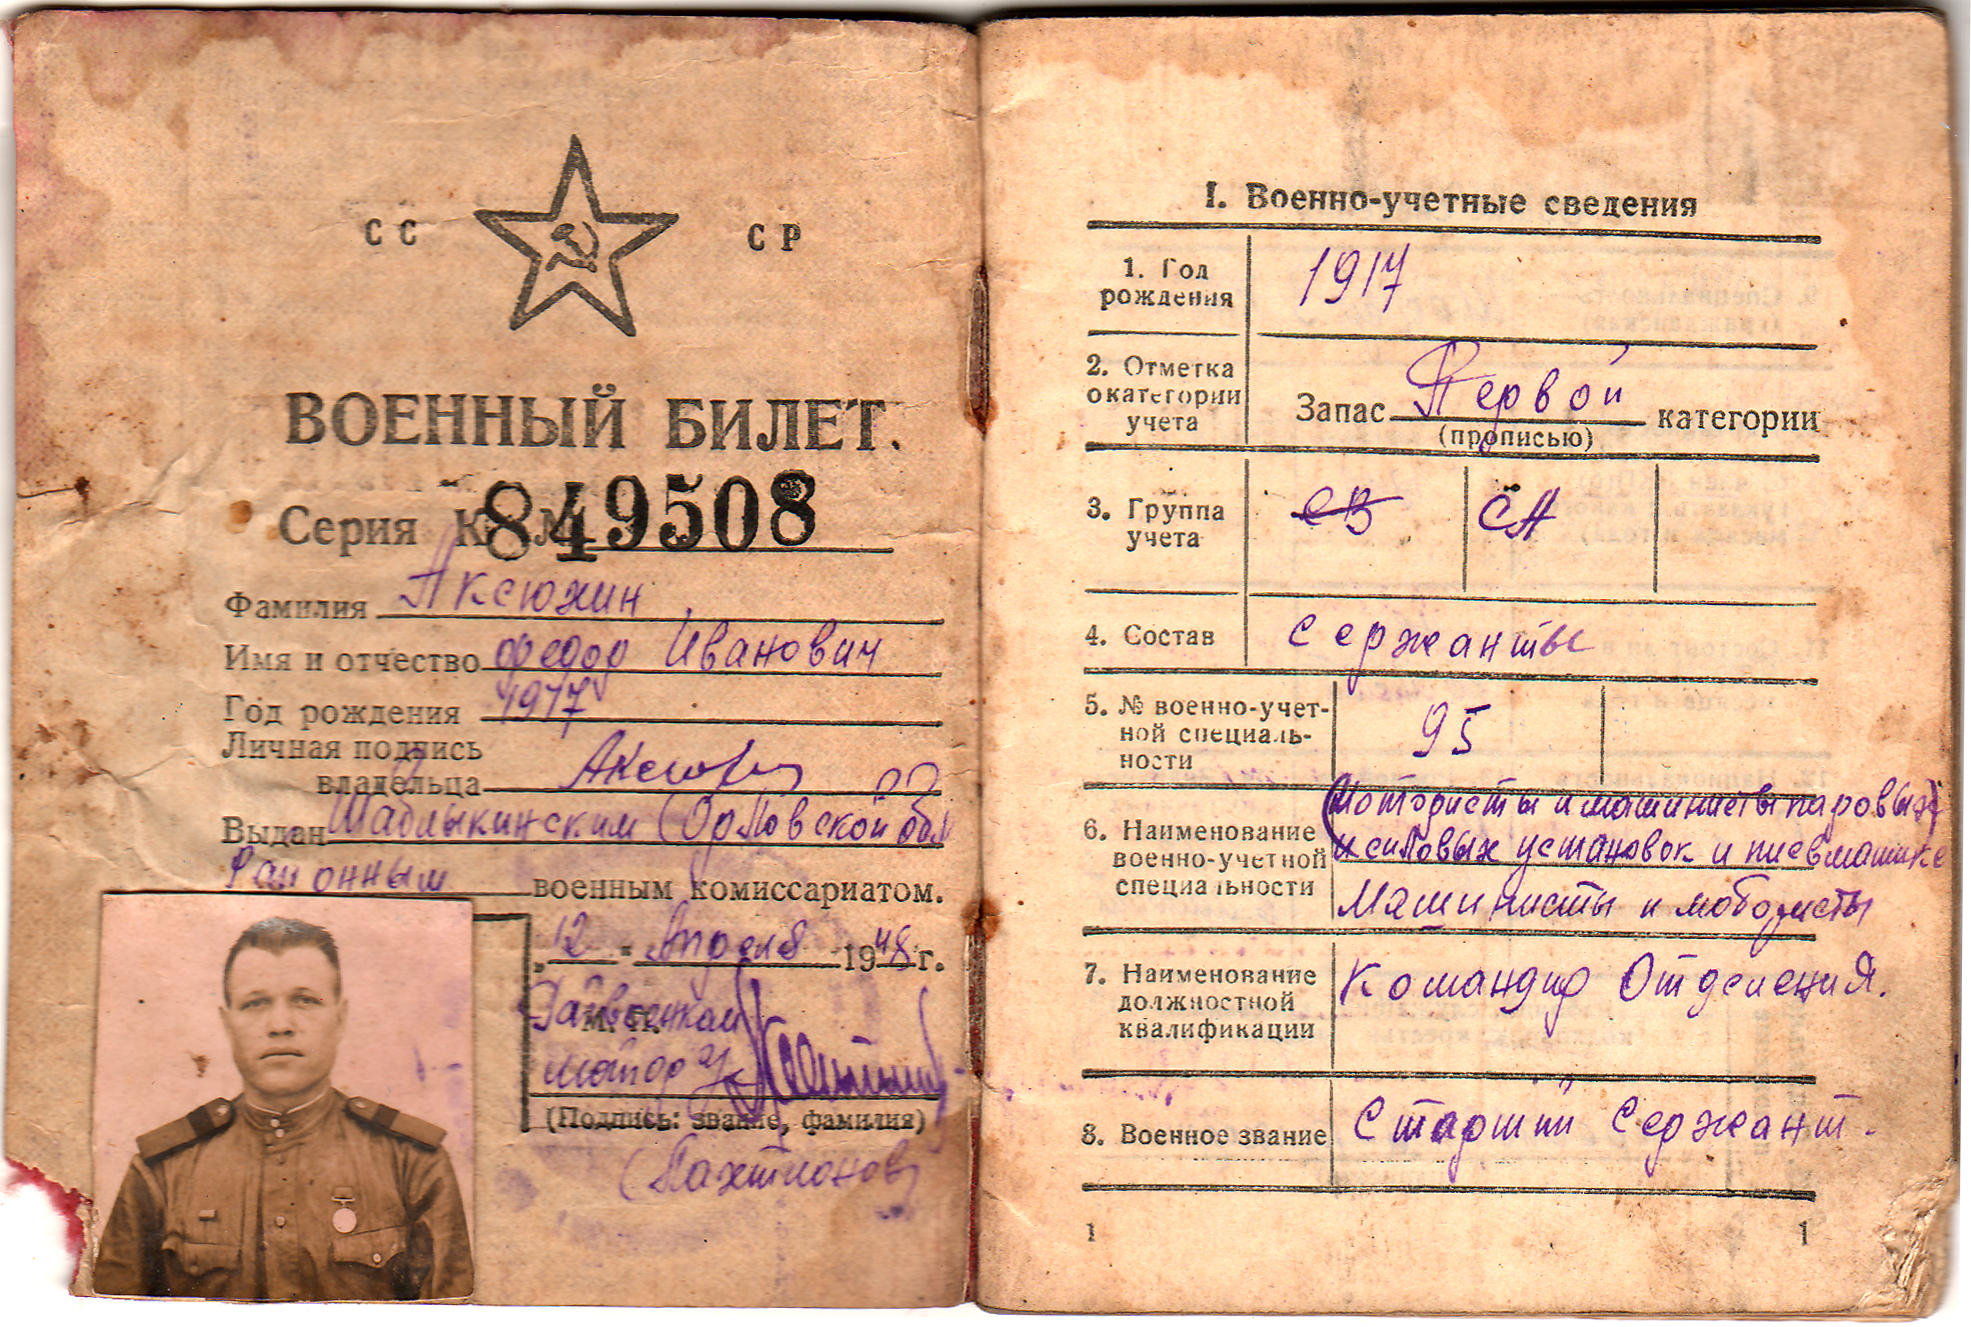 СС СР
ВОЕННЫЙ БИЛЕТ.
Серия К № 849508
Фамилия Аксюхин
Имя и отчество Федор Иванович
Год рождения 1917
Личная подпись
владельца
Выдан Шаблыкинским (Орловской обл
Районным военным комиссариатом.
„12" Апреля 1948 г.
Райвоенком
М. П.
майор
(Подпись: звание, фамилия)
I. Военно-учетные сведения
1. Год
рождения
1917
2. Отметка
о категории
учета
Запас Первой категории
(прописью)
3. Группа
учета
СВ СА
4. Состав
Сержанты
5. № военно-учет-
ной специаль-
ности
95
6. Наименование
военно-учетной
специальности
Мотористы и машинисты паровых
и силовых установок и
Машинисты и
7. Наименование
должностной
квалификации
Командир Отделения.
8. Военное звание
Старший Сержант.
1 1